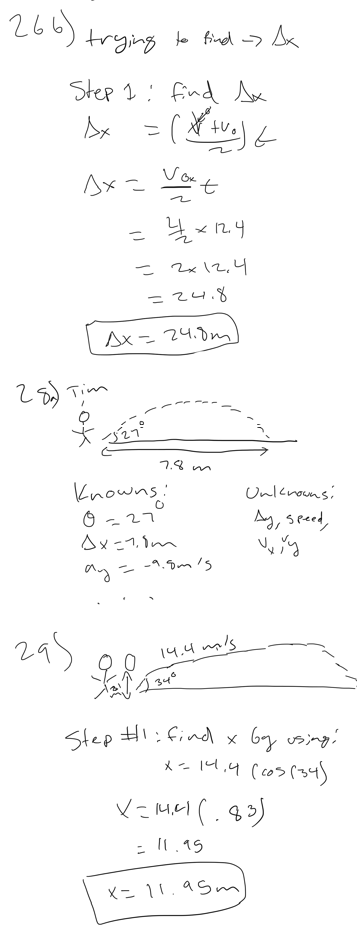 26b) trying to find → Δx
Step 1: find Δx
Δx = (v⁰ + v₀ / 2) t
Δx = V₀ₓ / 2 t
= 4/2 × 12.4
= 2 × 12.4
= 24.8
Δx = 24.8m
28a) Tim
27°
7.8 m
Knowns: Unknowns:
θ = 27° Δy, speed,
Δx = 7.8m Vx, Vy
ay = -9.8m/s
. . .
29) 14.4 m/s
34°
Step #1: find x by using:
x = 14.4 (cos(34)
x = 14.4 (.83)
= 11.95
x = 11.95m